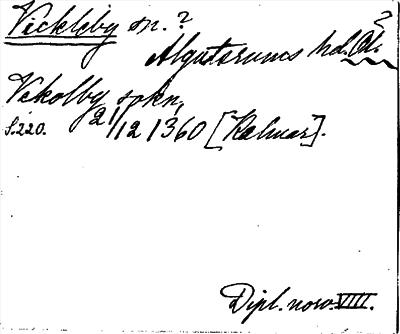 Vickleby sn.?
Algutsrums hd. Öl.?
Vekolby sokn,
s. 220. 21/12 1360 [Kalmar].
Dipl. norv. VIII.